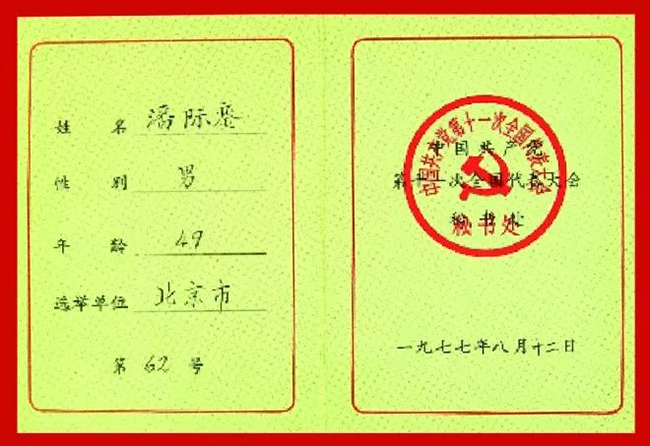 姓 名 潘际銮
性 别 男
年 龄 49
选举单位 北京市
第 62 号
中国共产党第十一次全国代表大会
秘书处
中国共产党
第十一次全国代表大会
秘书处
一九七七年八月十二日